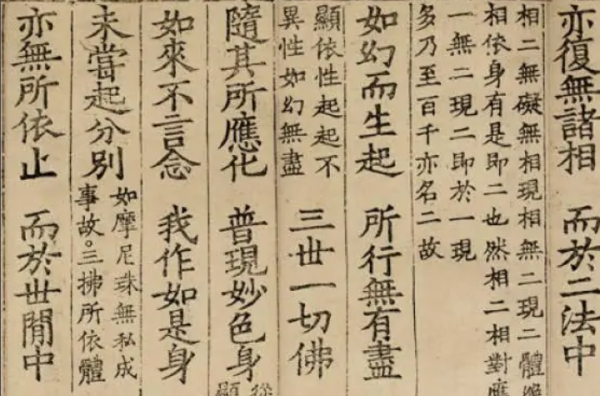 亦復無諸相 而於二法中
相二無礙無相現相無二現二體
相依身有是即二也然相二相對應
一無二現二即於一現
多乃至百千亦名二故
如幻而生起 所行無有盡
顯依性起起不
異性如幻無盡
三世一切佛
隨其所應化 普現妙色身
如來不言念 我作如是身
未嘗起分別
如摩尼珠無私成
事故。三拂所依體
亦無所依止 而於世閒中